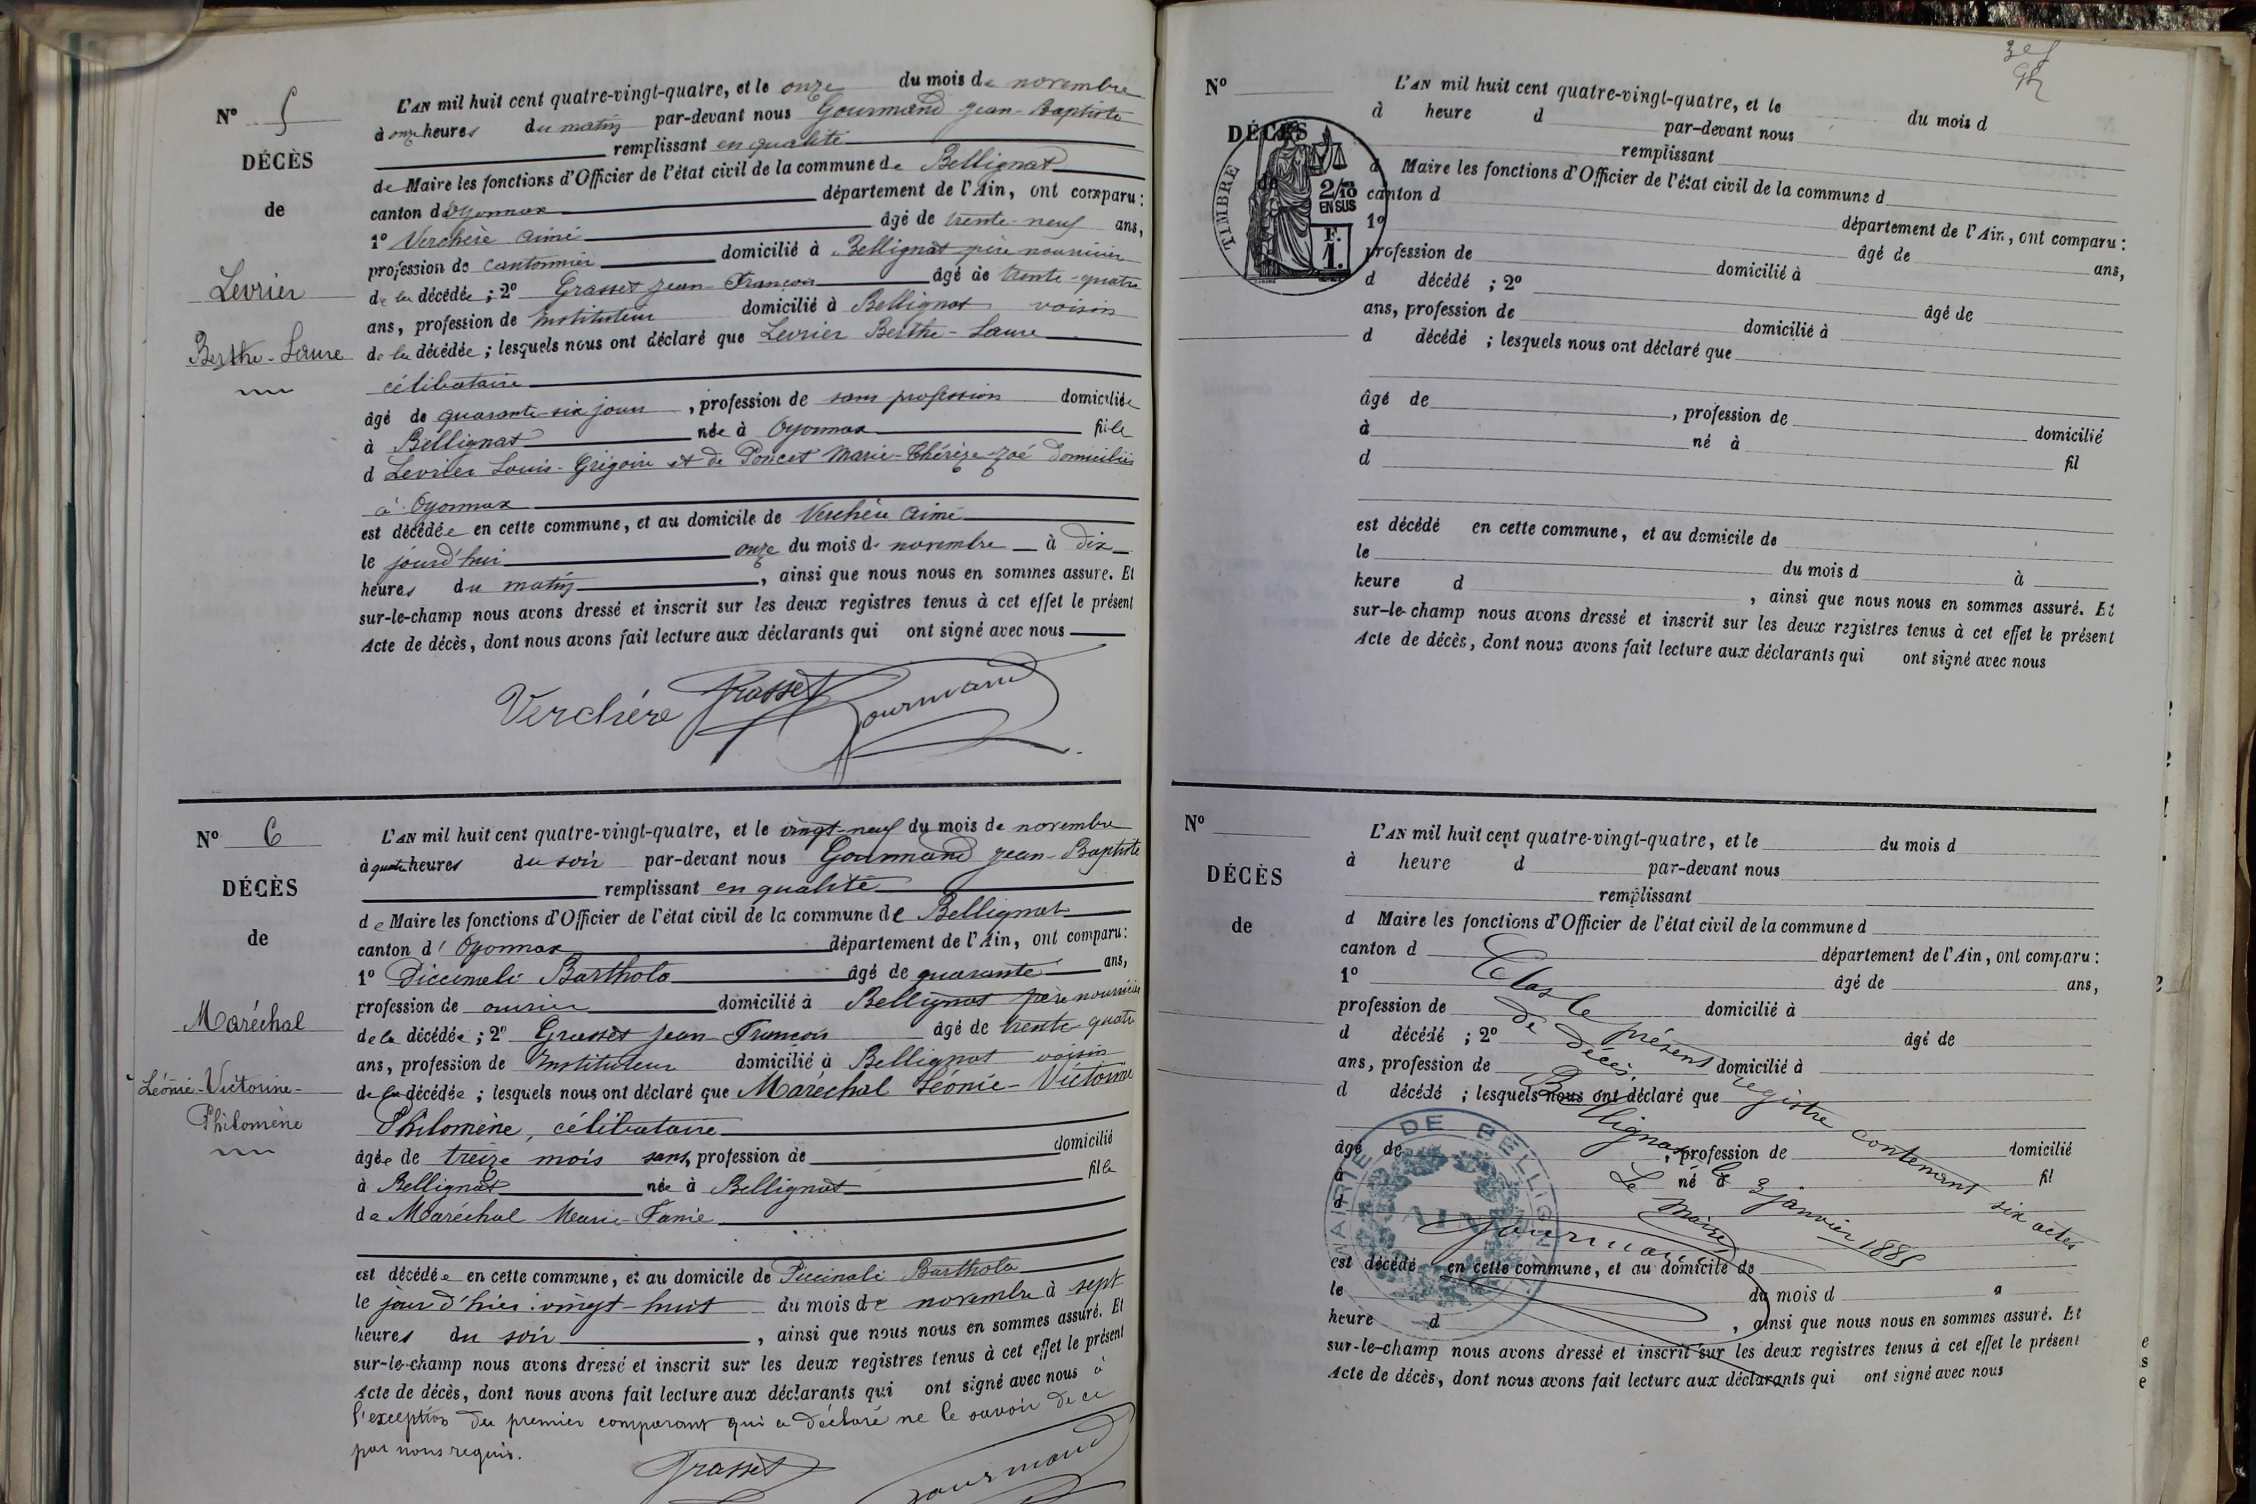 N° 5
DÉCÈS
de
Levrier
Berthe-Laure
L'AN mil huit cent quatre-vingt-quatre, et le onze du mois de novembre
à onze heures du matin par-devant nous Gourmand Jean-Baptiste
remplissant en qualité
de Maire les fonctions d'Officier de l'état civil de la commune de Bellignat
canton d'Oyonnax département de l'Ain, ont comparu:
1° Verchère Aimé âgé de trente-neuf ans,
profession de cantonnier domicilié à Bellignat père nourricier
de la décédée; 2° Grasset Jean-François âgé de trente-quatre
ans, profession de Instituteur domicilié à Bellignat voisin
de la décédée; lesquels nous ont déclaré que Levrier Berthe-Laure
célibataire
âgé de quarante-six jours, profession de sans profession domiciliée
à Bellignat née à Oyonnax fille
d Levrier Louis-Grégoire et de Poncet Marie-Thérèze-Zoé domiciliés
à Oyonnax
est décédée en cette commune, et au domicile de Verchère Aimé
le jourd'hui onze du mois de novembre à dix
heures du matin, ainsi que nous nous en sommes assuré. Et
sur-le-champ nous avons dressé et inscrit sur les deux registres tenus à cet effet le présent
Acte de décès, dont nous avons fait lecture aux déclarants qui ont signé avec nous
Verchère Grasset Gourmand
N° 6
DÉCÈS
de
Maréchal
Léonie-Victorine-
Philomène
L'AN mil huit cent quatre-vingt-quatre, et le vingt-neuf du mois de novembre
à quatre heures du soir par-devant nous Gourmand Jean-Baptiste
remplissant en qualité
de Maire les fonctions d'Officier de l'état civil de la commune de Bellignat
canton d'Oyonnax département de l'Ain, ont comparu:
1° Piccinali Bartholo âgé de quarante ans,
profession de ouvrier domicilié à Bellignat père nourricier
de la décédée; 2° Grasset Jean-François âgé de trente-quatre
ans, profession de Instituteur domicilié à Bellignat voisin
de la décédée; lesquels nous ont déclaré que Maréchal Léonie-Victorine
Philomène, célibataire
âgée de treize mois sans, profession de domicilié
à Bellignat née à Bellignat fille
de Maréchal Marie-Fanie
est décédée en cette commune, et au domicile de Piccinali Bartholo
le jour d'hier vingt-huit du mois de novembre à sept
heures du soir, ainsi que nous nous en sommes assuré. Et
sur-le-champ nous avons dressé et inscrit sur les deux registres tenus à cet effet le présent
Acte de décès, dont nous avons fait lecture aux déclarants qui ont signé avec nous à
l'exception du premier comparant qui a déclaré ne le savoir de ce
par nous requis.
Grasset Gourmand
N°
DÉCÈS
de
TIMBRE
2/10
EN SUS
F.
1.
L'AN mil huit cent quatre-vingt-quatre, et le du mois d
à heure d par-devant nous
remplissant
d Maire les fonctions d'Officier de l'état civil de la commune d
canton d département de l'Ain, ont comparu:
1° âgé de ans,
profession de domicilié à
d décédé; 2° âgé de
ans, profession de domicilié à
d décédé; lesquels nous ont déclaré que
âgé de, profession de domicilié
à né à fil
d
est décédé en cette commune, et au domicile de
le du mois d à
heure d, ainsi que nous nous en sommes assuré. Et
sur-le-champ nous avons dressé et inscrit sur les deux registres tenus à cet effet le présent
Acte de décès, dont nous avons fait lecture aux déclarants qui ont signé avec nous
N°
DÉCÈS
de
L'AN mil huit cent quatre-vingt-quatre, et le du mois d
à heure d par-devant nous
remplissant
d Maire les fonctions d'Officier de l'état civil de la commune d
canton d département de l'Ain, ont comparu:
1° âgé de ans,
profession de domicilié à
d décédé; 2° âgé de
ans, profession de domicilié à
d décédé; lesquels nous ont déclaré que
âgé de, profession de domicilié
à né à fil
d
est décédé en cette commune, et au domicile de
le du mois d à
heure d, ainsi que nous nous en sommes assuré. Et
sur-le-champ nous avons dressé et inscrit sur les deux registres tenus à cet effet le présent
Acte de décès, dont nous avons fait lecture aux déclarants qui ont signé avec nous
Clos le présent registre contenant six actes
de décès.
Bellignat, le 3 janvier 1885
Le Maire,
Gourmand
MAIRIE DE BELLIGNAT
AIN